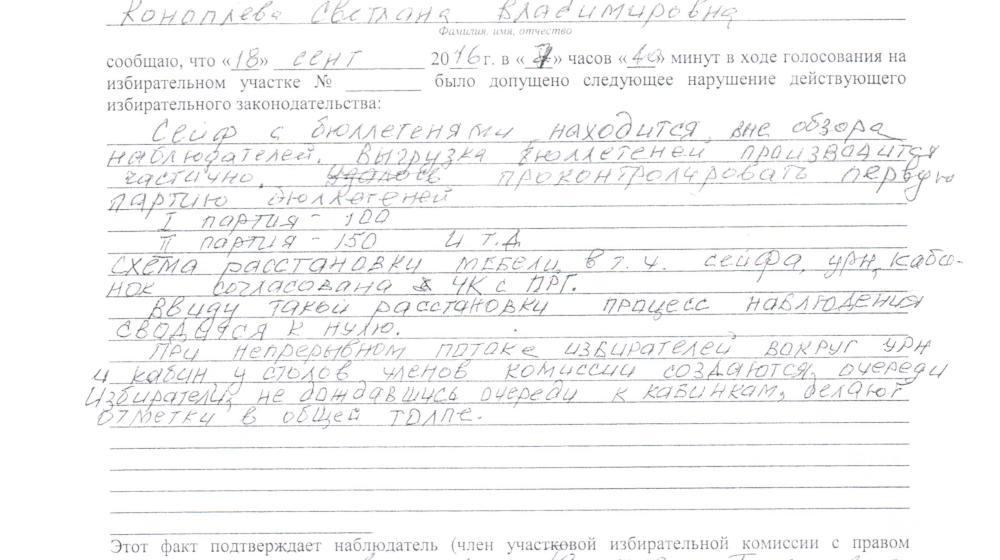 Коноплева Светлана Владимировна
Фамилия, имя, отчество
сообщаю, что «18» сент 2016г. в «7» часов «40» минут в ходе голосования на
избирательном участке № ________ было допущено следующее нарушение действующего
избирательного законодательства:
Сейф с бюллетенями находится вне обзора
наблюдателей. Выгрузка бюллетеней произвадится
частично. проконтролировать первую
партию бюллетеней
I партия - 100
II партия - 150 и т.д
схема расстановки мебели, в т.ч. сейфа, урн, каби-
нок согласована ЧК с ПРГ.
Ввиду такой расстановки процесс наблюдения
сводится к нулю.
При непрерывном потоке избирателей вокруг урн
и кабин у столов членов комиссии создаются очереди
Избиратели, не дождавшись очереди к кабинкам, делают
отметки в общей толпе.
Этот факт подтверждает наблюдатель (член участковой избирательной комиссии с правом